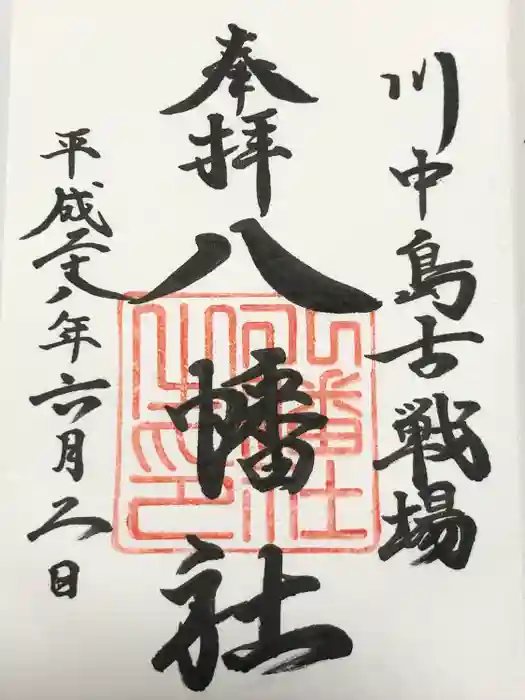 川中島古戦場
奉拝
八幡社
平成二十八年六月二日